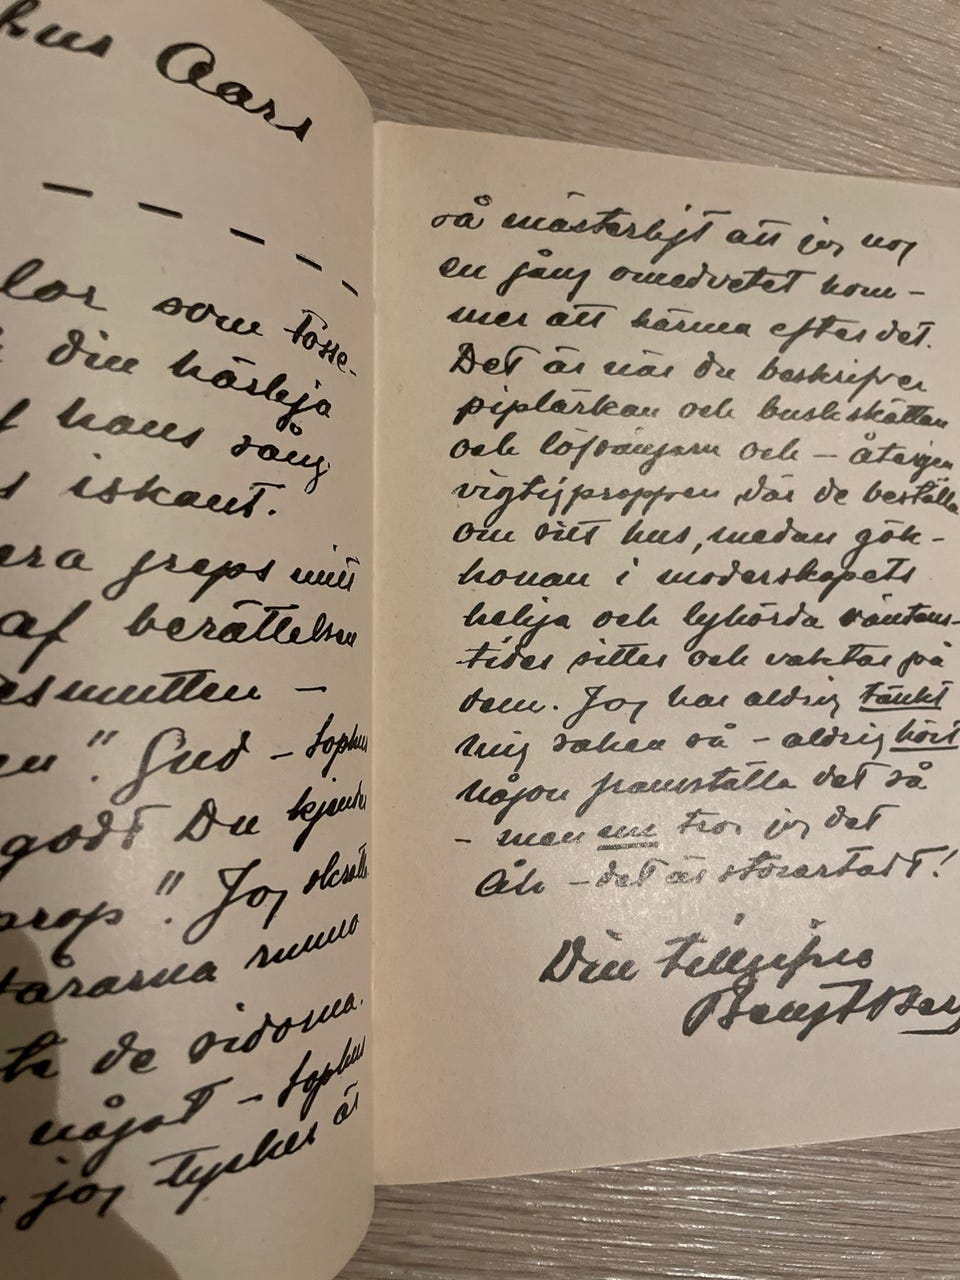 hus Aars
— — — — —
lor som tosse-
din härliga
hans sång
s iskant.
era greps mitt
af berättelsen
esmutten —
en". Gud – Sophus
godt Du kjender
prop". Jag
tårarna runno
de sidorna.
något – Sophus
jag tycker är
så mästerligt att jag nog
en gång omedvetet kom-
mer att härma efter det.
Det är när du beskrifver
piplärkan och buskskättan
och löfsångarn och – återigen
vigtigproppen där de beställa
om sitt hus, medan gök-
honan i moderskapets
heliga och lyhörda väntans-
tider sitter och vaktar på
dem. Jag har aldrig tänkt
mig saken så – aldrig hört
någon framställa det så
– men nu tror jag det
Åh – det är storartadt!
Din tillgifne
Bengt Berg